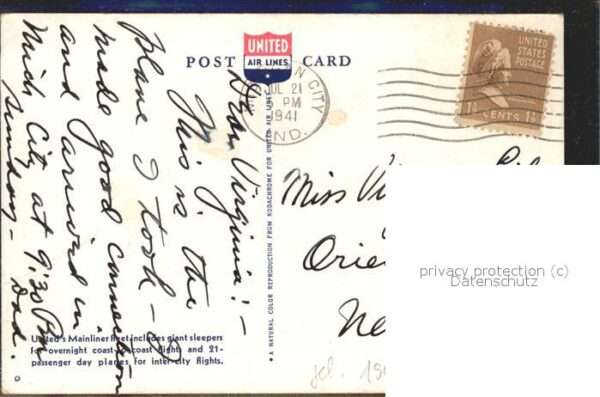 POST CARD
UNITED
AIR LINES
CITY
JUL 21
PM
1941
IND.
UNITED
STATES
POSTAGE
1½ CENTS 1½
Dear Virginia! -
This is the
plane I took - I
made good connection
and arrived in
Mich City at 9:30 PM
Sunday - Dad.
Miss Vi
Orie
Ne
A NATURAL COLOR REPRODUCTION FROM KODACHROME FOR UNITED AIR LINES
United's Mainliner fleet includes giant sleepers
for overnight coast-to-coast flights and 21-
passenger day planes for inter-city flights.
gel. 19
privacy protection (c)
Datenschutz